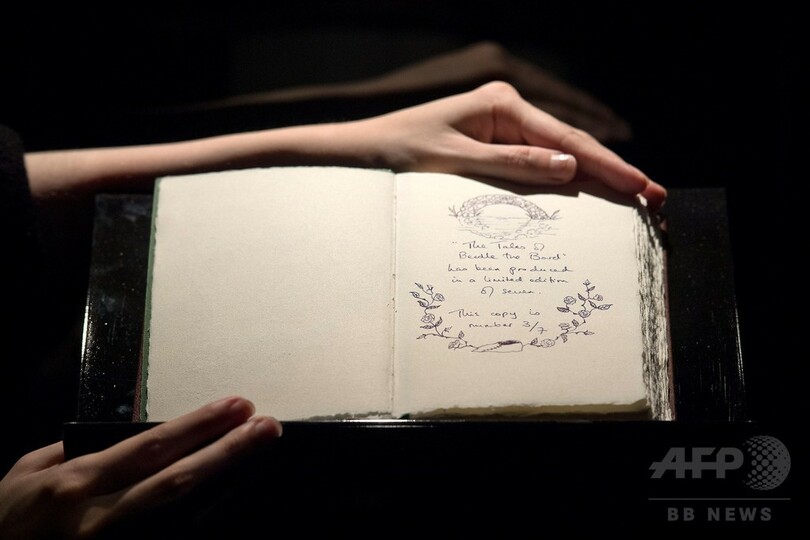 "The Tales of
Beedle the Bard"
has been produced
in a limited edition
of seven.
This copy is
number 3/7
AFP
BB NEWS